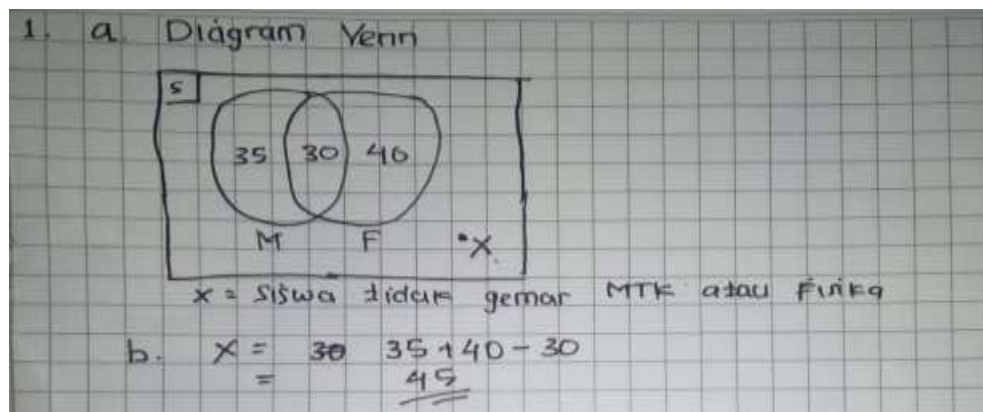 1. a. Diagram Venn
S
35 30 40
M F •X
x = Siswa tidak gemar MTK atau Fisika
b. X = 30 35 + 40 - 30
= 45